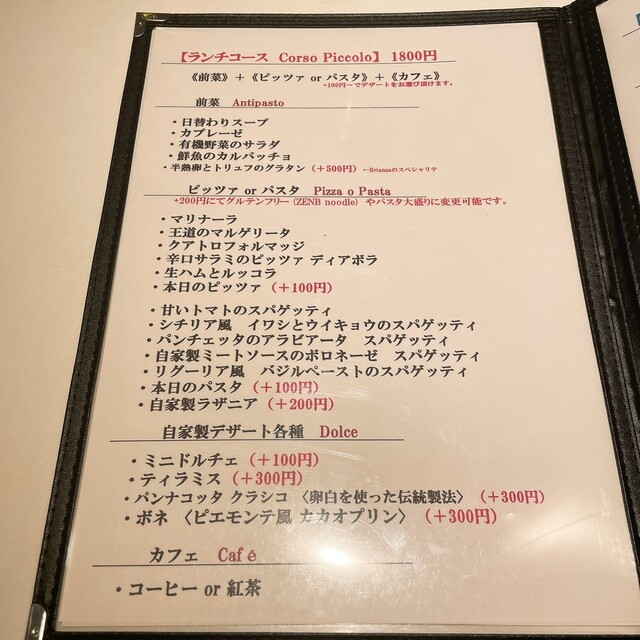 【ランチコース Corso Piccolo】 1800円
《前菜》＋《ピッツァ or パスタ》＋《カフェ》
+100円～でデザートをお選び頂けます。
前菜 Antipasto
・日替わりスープ
・カプレーゼ
・有機野菜のサラダ
・鮮魚のカルパッチョ
・半熟卵とトリュフのグラタン（＋500円）←Brianzaのスペシャリテ
ピッツァ or パスタ Pizza o Pasta
+200円にてグルテンフリー(ZENB noodle) やパスタ大盛りに変更可能です。
・マリナーラ
・王道のマルゲリータ
・クアトロフォルマッジ
・辛口サラミのピッツァ ディアボラ
・生ハムとルッコラ
・本日のピッツァ（＋100円）
・甘いトマトのスパゲッティ
・シチリア風 イワシとウイキョウのスパゲッティ
・パンチェッタのアラビアータ スパゲッティ
・自家製ミートソースのボロネーゼ スパゲッティ
・リグーリア風 バジルペーストのスパゲッティ
・本日のパスタ（＋100円）
・自家製ラザニア（＋200円）
自家製デザート各種 Dolce
・ミニドルチェ（＋100円）
・ティラミス（＋300円）
・パンナコッタ クラシコ 〈卵白を使った伝統製法〉（＋300円）
・ボネ 〈ピエモンテ風 カカオプリン〉（＋300円）
カフェ Café
・コーヒー or 紅茶